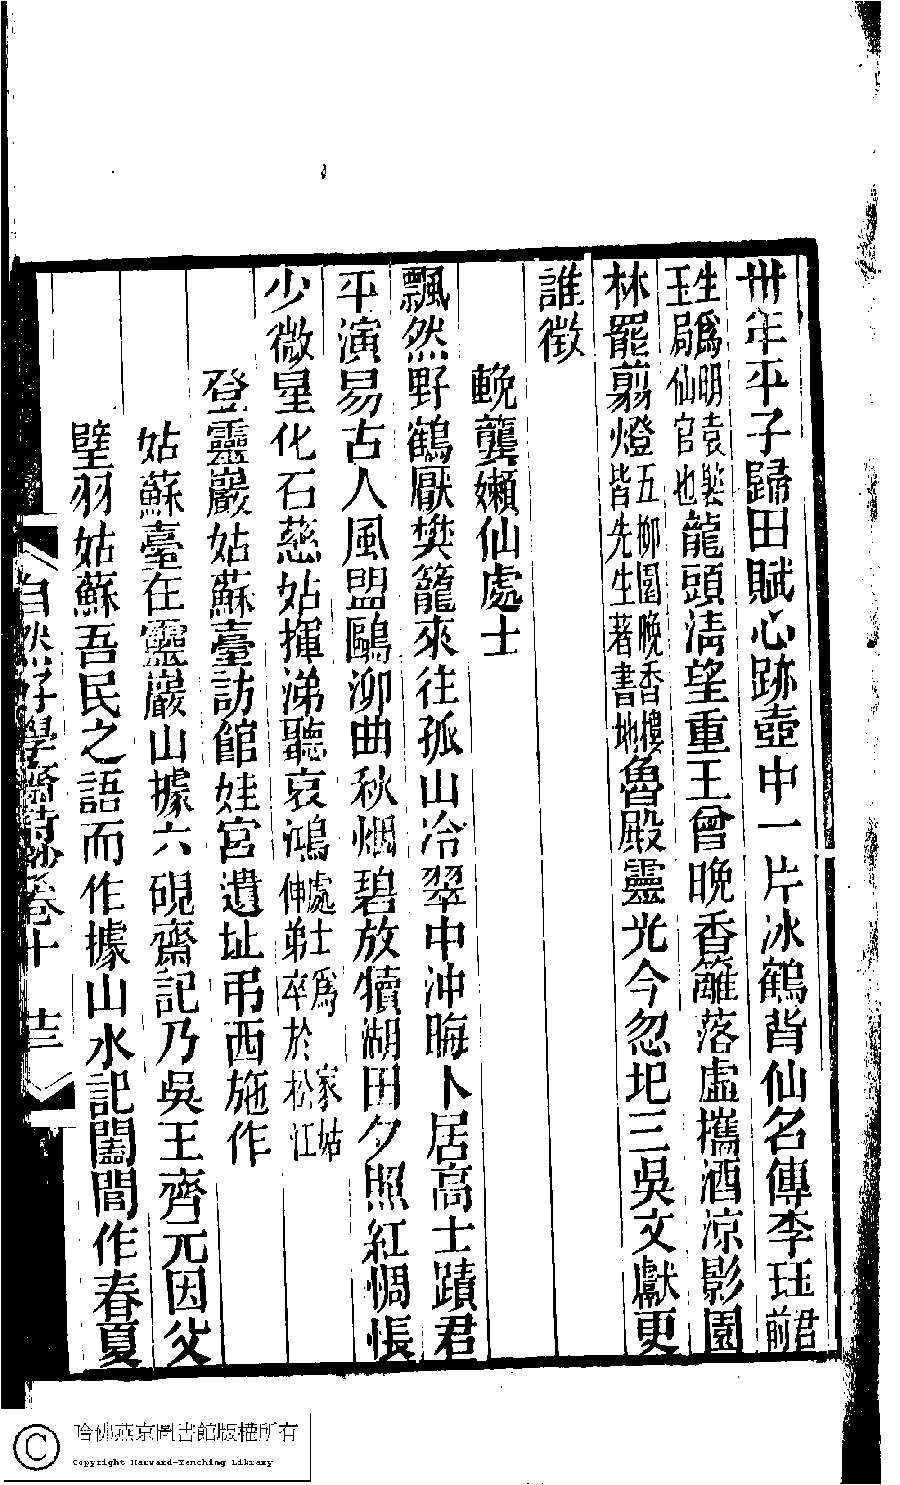 卅年平子歸田賦心跡壺中一片冰鶴背仙名傳李珏君前
生爲明袁褧玉局仙官也龍頭淸望重王曾晚香籬落虛攜酒涼影園
林罷翦燈五柳園晚香樓皆先生著書地魯殿靈光今忽圮三吳文獻更
誰徵
輓龔嬾仙處士
飄然野鶴厭樊籠來往孤山冷翠中沖晦卜居高士蹟君
平演易古人風盟鷗泖曲秋烟碧放犢湖田夕照紅惆悵
少微星化石慈姑揮涕聽哀鴻處士爲 家姑伸弟卒於松江
登靈巖姑蘇臺訪館娃宮遺址弔西施作
姑蘇臺在靈巖山據六硯齋記乃吳王齊元因父
壁羽姑蘇吾民之語而作據山水記闔閭作春夏
自然好學齋詩鈔卷十 廿三
哈佛燕京圖書館版權所有
Copyright Harvard-Yenching Library